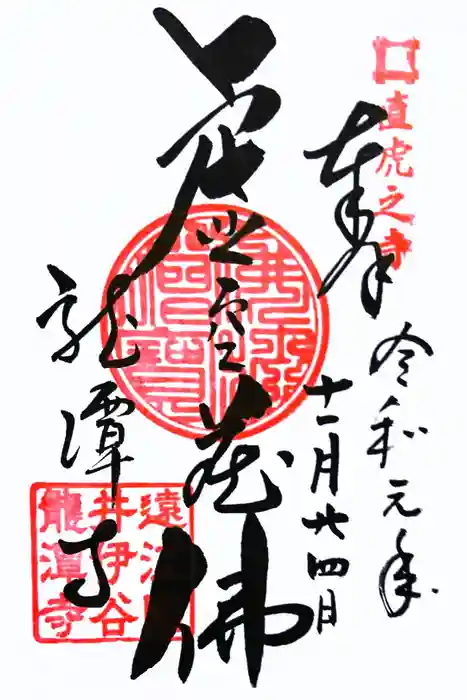 直虎之寺
奉拝
令和元年
十一月廿四日
虚空蔵佛
佛法僧寶
龍潭寺
遠江国
井伊谷
龍潭寺